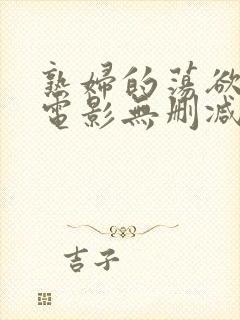 熟婦的蕩欲
電影無刪減
吉子